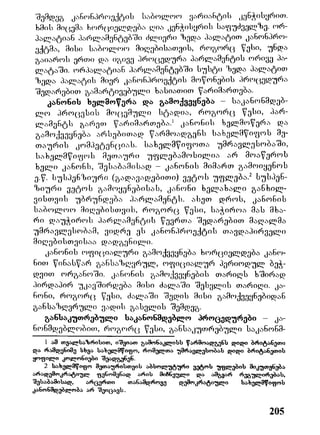 შემდეგ კანონპროექტის საბოლოო ვარიანტის კენჭისყრით.
ხმის მიცემა ხორციელდება ღია კენჭისყრის საფუძველზე. ორ-
პალატიან პარლამენტებში ძლიერი ზედა პალატით კანონპრო-
ექტმა, მისი საბოლოო მიღებისათვის, როგორც წესი, უნდა
გაიაროს ერთი და იგივე პროცედურა პარლამენტის ორივე პა-
ლატაში. ორპალატიან პარლამენტებში სუსტი ზედა პალატით
ზედა პალატის მიერ კანონპროექტის მოწონების პროცედურა
შედარებით გამარტივებული ხასიათით წარიმართება.
კანონის ხელმოწერა და გამოქვეყნება – საკანონმდებ-
ლო პროცესის მოცემული სტადია, როგორც წესი, პარ-
ლამენტს გარეთ წარიმართება.¹ კანონის ხელმოწერა და
გამოქვეყნება არსებითად წარმოადგენს სახელმწიფოს მე-
თაურის კომპეტენციას. სახელმწიფოთა უმრავლესობაში,
სახელმწიფოს მეთაური უფლებამოსილია არ მოაწეროს
ხელი კანონს, შესაბამისად – კანონის მიმართ გამოიყენოს
ე.წ. სუსპენზიური (გადავადებითი) ვეტოს უფლება.² სუსპენ-
ზიური ვეტოს გამოყენებისას, კანონი ხელახალი განხილ-
ვისთვის უბრუნდება პარლამენტს. ასეთ დროს, კანონის
საბოლოო მიღებისთვის, როგორც წესი, საჭიროა მას მხა-
რი დაუჭიროს პარლამენტის წევრთა შედარებით მაღალმა
უმრავლესობამ, ვიდრე ეს კანონპროექტის თავდაპირველი
მიღებისთვისაა დადგენილი.
კანონის ოფიციალური გამოქვეყნება ხორციელდება კანო-
ნით წინასწარ განსაზღვრულ, ოფიციალურ პერიოდულ ბეჭ-
დვით ორგანოში. კანონის გამოქვეყნების თარიღს ხშირად
პირდაპირ უკავშირდება მისი ძალაში შესვლის თარიღი. კა-
ნონი, როგორც წესი, ძალაში შედის მისი გამოქვეყნებიდან
განსაზღვრული ვადის გასვლის შემდეგ.
განსაკუთრებული საკანონმდებლო პროცედურები – კა-
ნონმდებლობით, როგორც წესი, განსაკუთრებული საკანონმ-
1 ამ თვალსაზრისით, იშვიათ გამონაკლისს წარმოადგენს დიდი ბრიტანეთი
და რამდენიმე სხვა სახელმწიფო, რომელთა უმრავლესობას დიდი ბრიტანეთის
ყოფილი კოლონიები შეადგენენ.
2 სახელმწიფო მეთაურისთვის აბსოლუტური ვეტოს უფლების მიკუთვნება
არადემოკრატიულ ფენომენად არის მიჩნეული და ამგვარ რეგულირებას,
შესაბამისად, არცერთი თანამედროვე დემოკრატიული სახელმწიფოს
კანონმდებლობა არ შეიცავს.
205